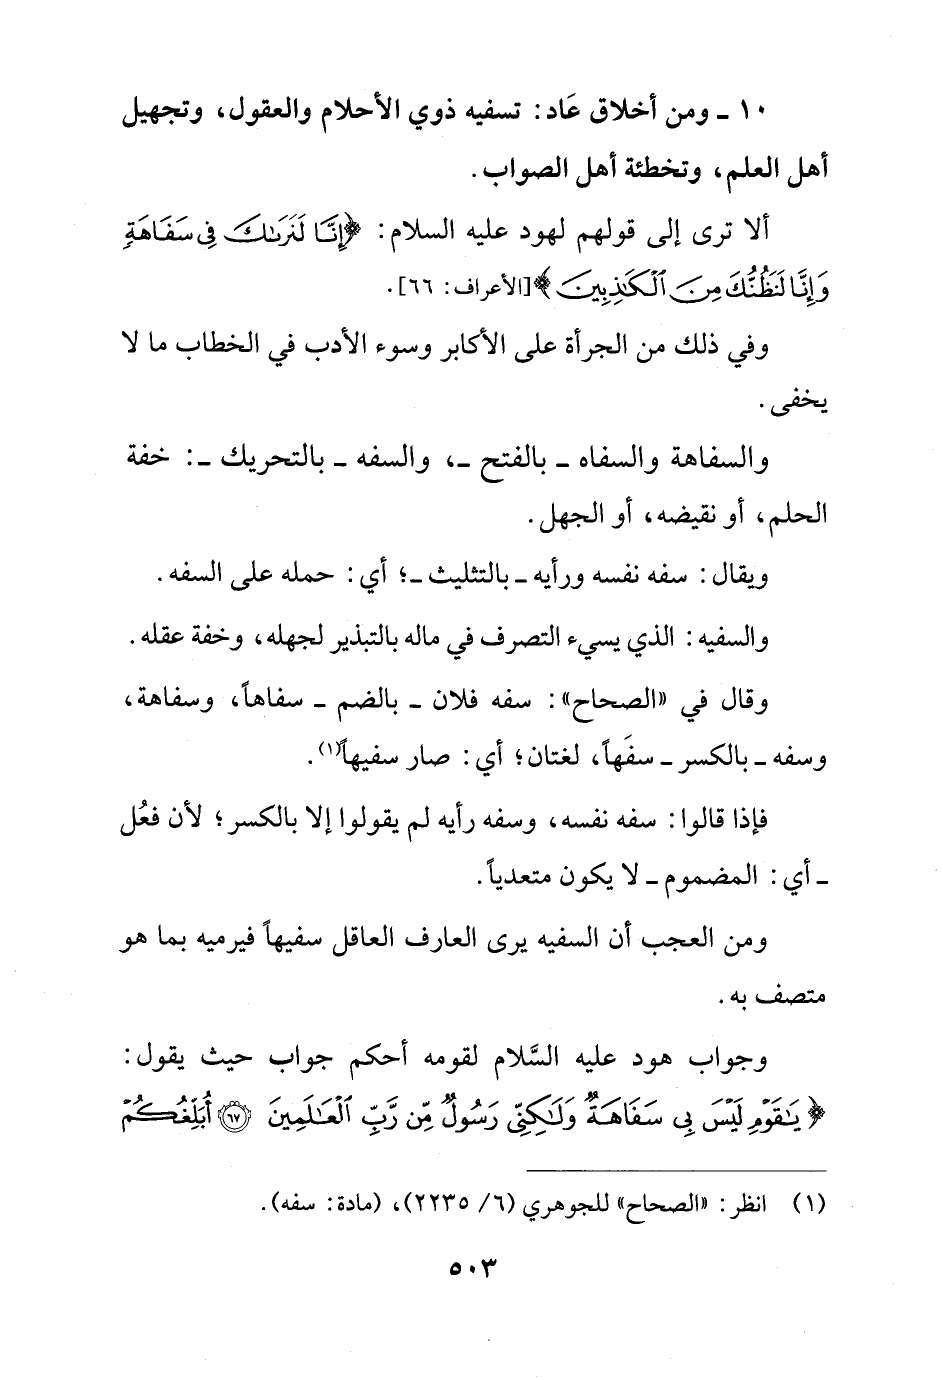 ١٠ ـ ومن أخلاق عَاد: تسفيه ذوي الأحلام والعقول، وتجهيل
أهل العلم، وتخطئة أهل الصواب.
ألا ترى إلى قولهم لهود عليه السلام: ﴿إِنَّا لَنَرَىٰكَ فِي سَفَاهَةٍ
وَإِنَّا لَنَظُنُّكَ مِنَ ٱلْكَٰذِبِينَ﴾[الأعراف: ٦٦].
وفي ذلك من الجرأة على الأكابر وسوء الأدب في الخطاب ما لا
يخفى.
والسفاهة والسفاه ـ بالفتح ـ، والسفه ـ بالتحريك ـ: خفة
الحلم، أو نقيضه، أو الجهل.
ويقال: سفه نفسه ورأيه ـ بالتثليث ـ؛ أي: حمله على السفه.
والسفيه: الذي يسيء التصرف في ماله بالتبذير لجهله، وخفة عقله.
وقال في «الصحاح»: سفه فلان ـ بالضم ـ سفاهاً، وسفاهة،
وسفه ـ بالكسر ـ سفَهاً، لغتان؛ أي: صار سفيهاً(١).
فإذا قالوا: سفه نفسه، وسفه رأيه لم يقولوا إلا بالكسر؛ لأن فعُل
ـ أي: المضموم ـ لا يكون متعدياً.
ومن العجب أن السفيه يرى العارف العاقل سفيهاً فيرميه بما هو
متصف به.
وجواب هود عليه السَّلام لقومه أحكم جواب حيث يقول:
﴿يَٰقَوْمِ لَيْسَ بِي سَفَاهَةٌ وَلَٰكِنِّي رَسُولٌ مِّن رَّبِّ ٱلْعَٰلَمِينَ ۝٦٧ أُبَلِّغُكُمْ
(١) انظر: «الصحاح» للجوهري (٦/ ٢٢٣٥)، (مادة: سفه).
٥٠٣